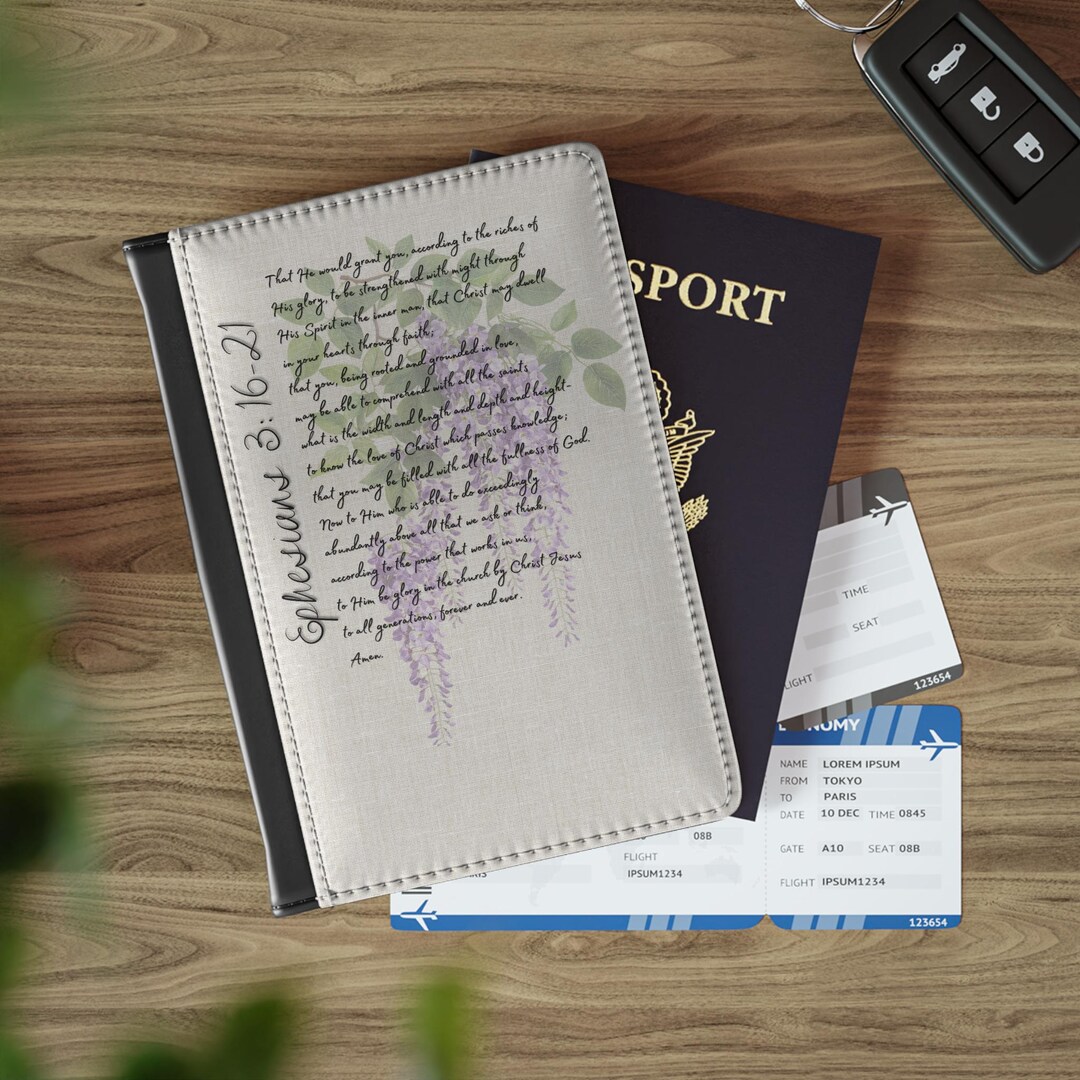 Ephesians 3:16-21
That He would grant you, according to the riches of
His glory, to be strengthened with might through
His Spirit in the inner man, that Christ may dwell
in your hearts through faith;
that you, being rooted and grounded in love,
may be able to comprehend with all the saints
what is the width and length and depth and height-
to know the love of Christ which passes knowledge;
that you may be filled with all the fullness of God.
Now to Him who is able to do exceedingly
abundantly above all that we ask or think,
according to the power that works in us,
to Him be glory in the church by Christ Jesus
to all generations, forever and ever.
Amen.
SPORT
TIME
SEAT
LIGHT
123654
NOMY
NAME LOREM IPSUM
FROM TOKYO
TO PARIS
DATE 10 DEC TIME 0845
GATE A10 SEAT 08B
FLIGHT IPSUM1234
123654
08B
FLIGHT
IPSUM1234